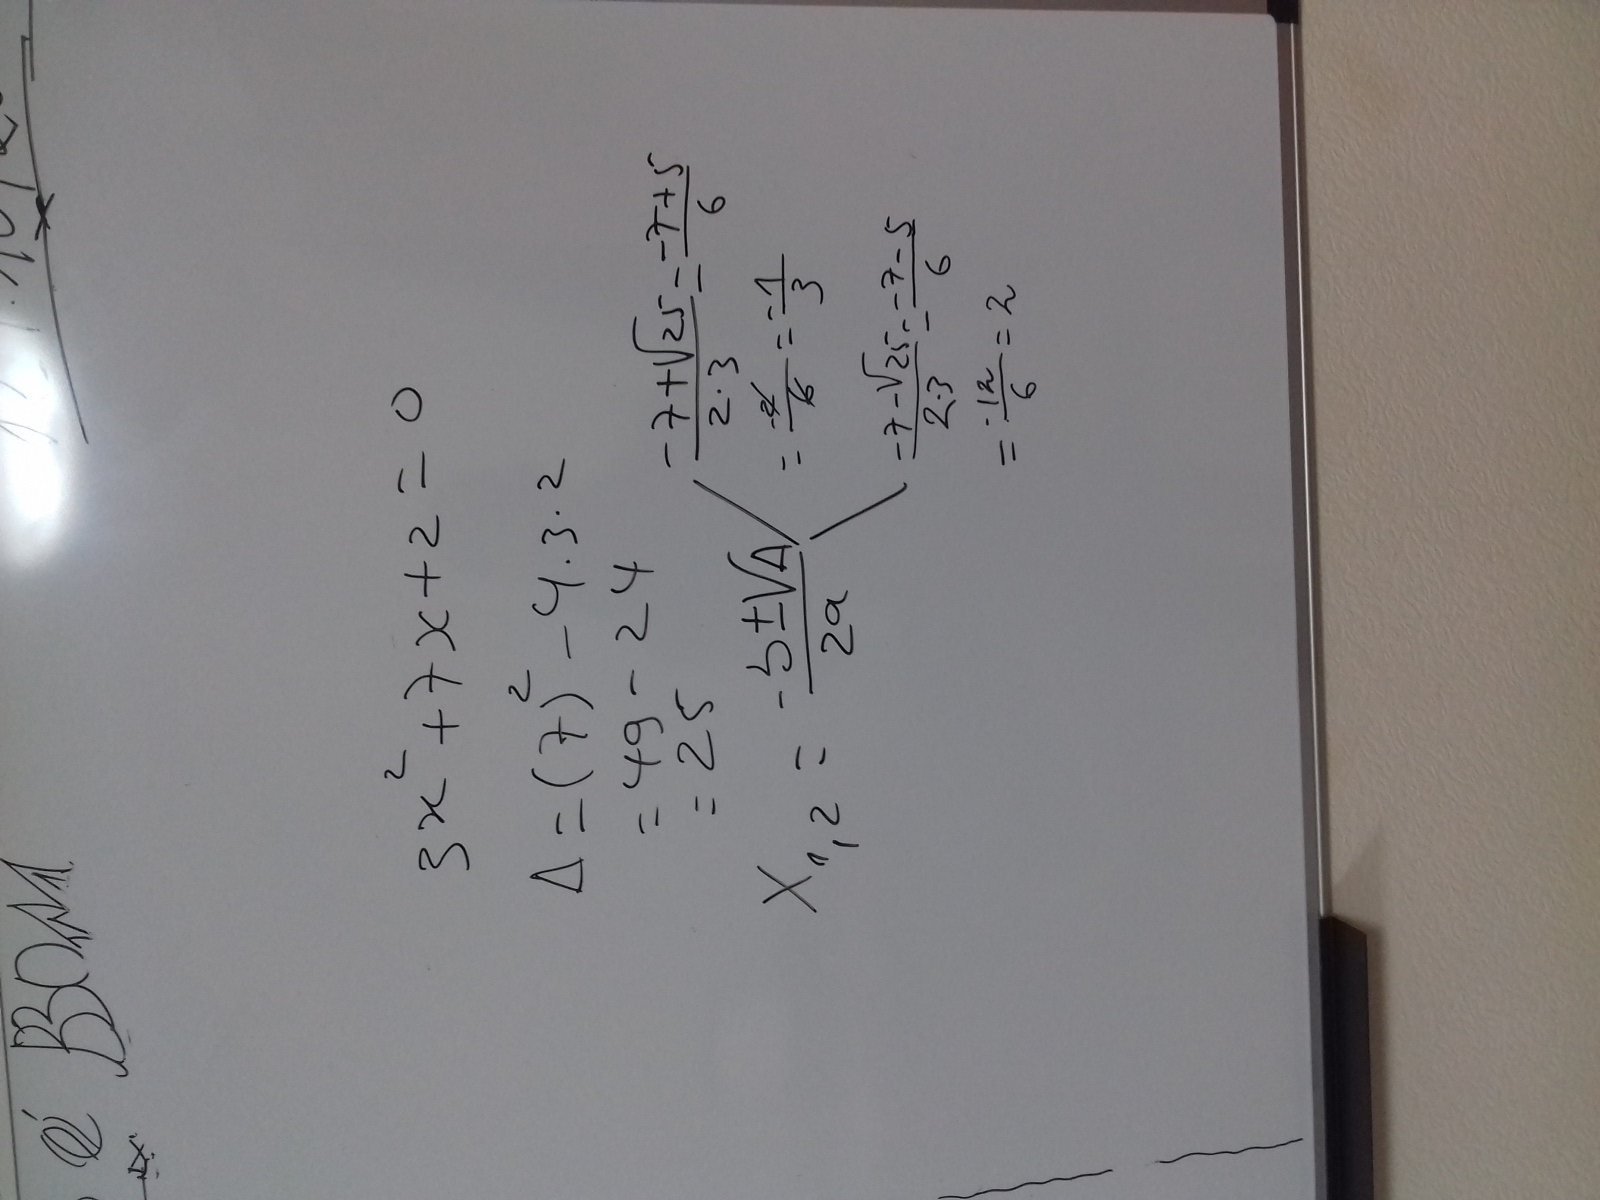 é BOM
3x² + 7x + 2 = 0
Δ = (7)² - 4 · 3 · 2
= 49 - 24
= 25
X₁,₂ = (-b ± √Δ) / 2a
(-7 + √25) / (2 · 3) = (-7 + 5) / 6
= -2/6 = -1/3
(-7 - √25) / (2 · 3) = (-7 - 5) / 6
= -12/6 = 2